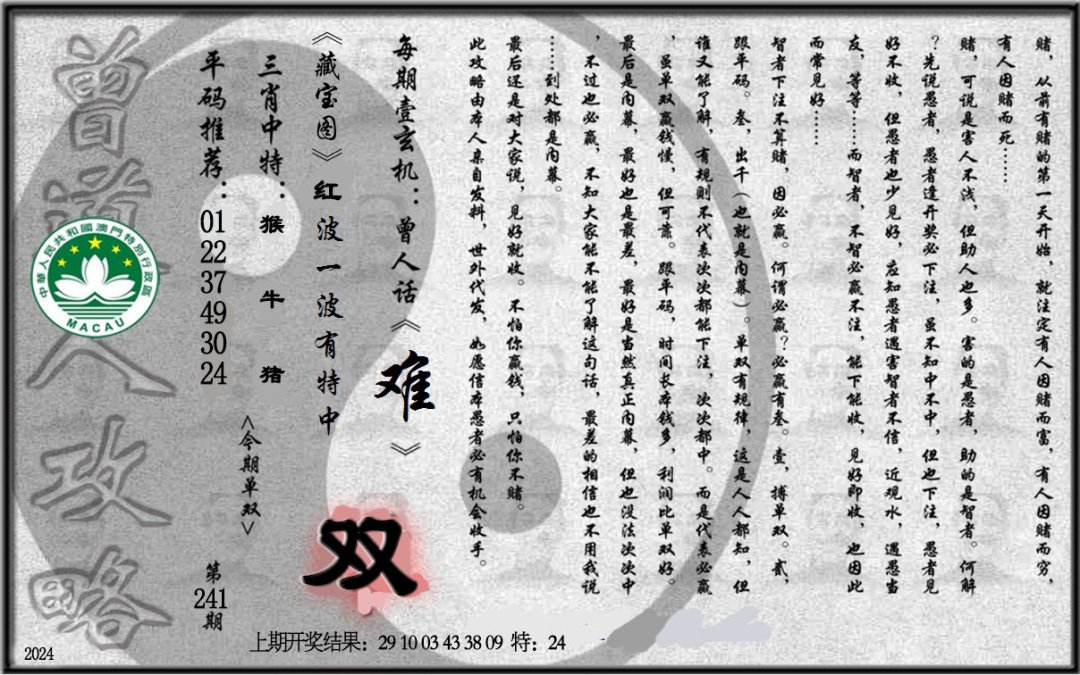 赌，从前有赌的第一天开始，就注定有人因赌而富，有人因赌而穷，
有人因赌而死……
赌，可说是害人不浅，但助人也多。害的是愚者，助的是智者。何解
？先说愚者，愚者逢开奖必下注，虽不知中不中，但也下注，愚者见
好不收，但愚者也少见好，应知愚者遇害智者不信，近观水，遇愚当
友，等等……而智者，不智必赢不注，能下能收，见好即收，也因此
而常见好……
智者下注不算赌，因必赢。何谓必赢？必赢有叁。壹，搏单双。贰，
跟平码。叁，出千（也就是内幕）。单双有规律，这是人人都知，但
谁又能了解，有规则不代表次次都能下注，次次都中。而是代表必赢
，虽单双赢钱慢，但可靠。跟平码，时间长本钱多，利润比单双好。
最后是内幕，最好也是最差，最好是当然真正内幕，但也没法次次中
，不过也必赢，不知大家能不能了解这句话，最差的相信也不用我说
……到处都是内幕。
最后还是对大家说，见好就收。不怕你赢钱，只怕你不赌。
此攻略由本人亲自发料，世外代发，如愿信本愚者必有机会收手。
每期壹玄机：曾人话《难》
《藏宝图》红波一波有特中
双
三肖中特：猴 牛 猪
<今期单双>
平码推荐：01 22 37 49 30 24
第241期
曾道人攻略
中華人民共和國澳門特別行政區
MACAU
上期开奖结果：29 10 03 43 38 09 特：24
2024